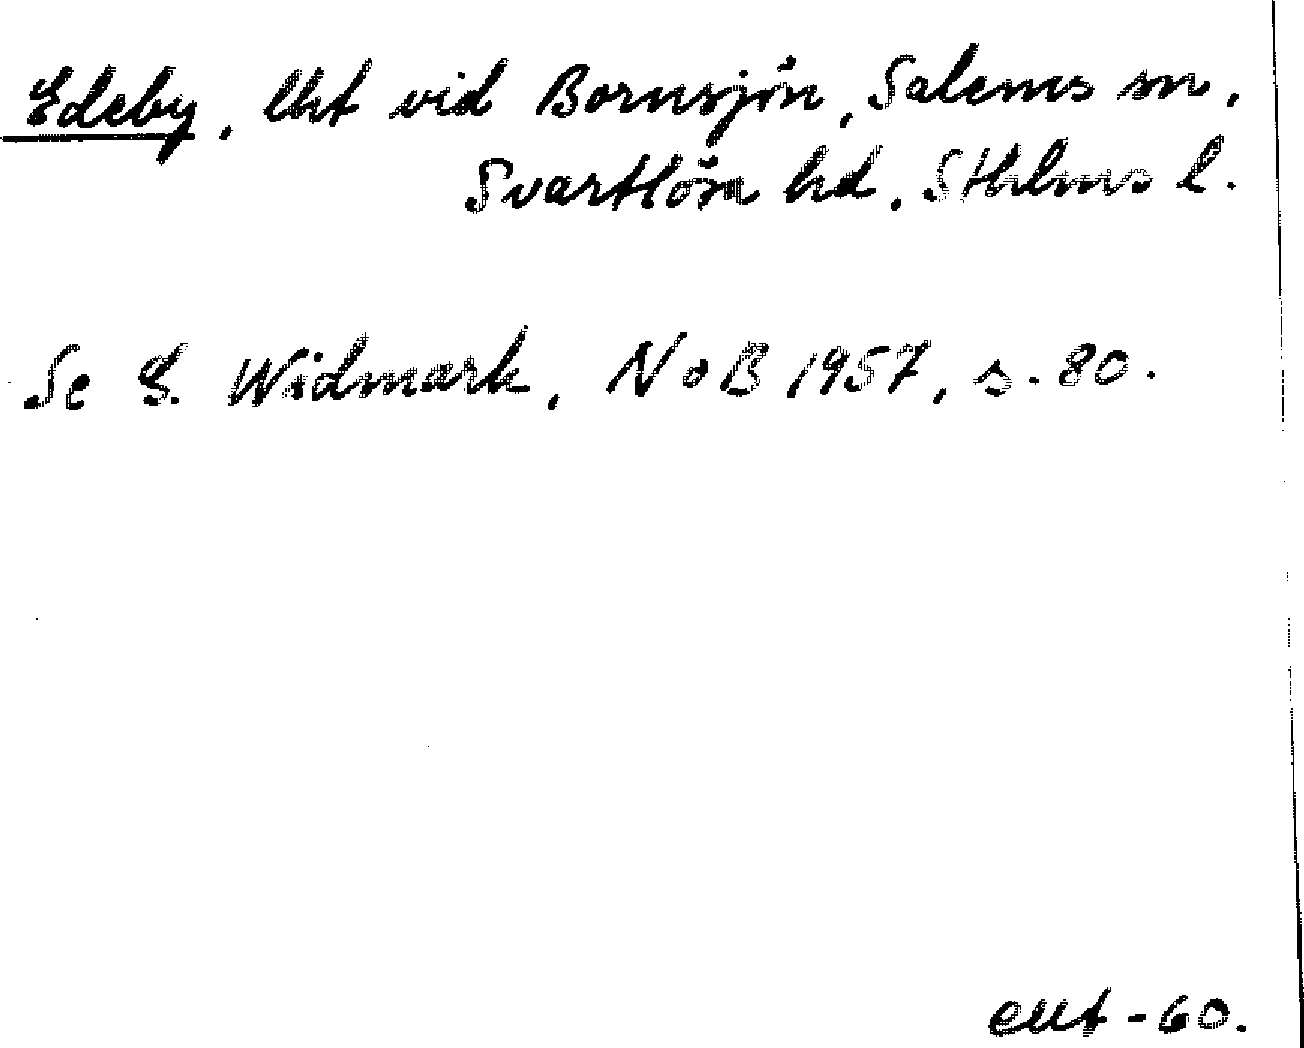 Edeby, Lht vid Bornsjön, Salems sn,
Svartlösa hd, Sthlms l.
Se G. Widmark, NoB 1957, s. 80.
-60.